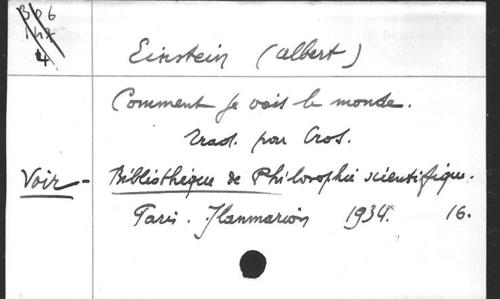 B06
4
Einstein (Albert)
Comment je vois le monde.
Trad. par Cros.
Voir - Bibliothèque de Philosophie scientifique.
Paris. Flammarion 1934. 16.